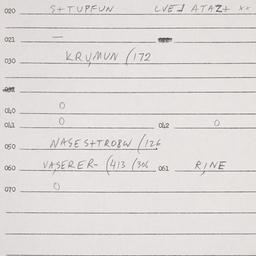 020 S+TUPFUN LVE⅃ ATAZ+ xx
021 —
030 KRYMUN (172
040 0
041 0 042 0
050 NASES+TROBW (126
060 VASERER- (413 (306 061 RINE
070 0